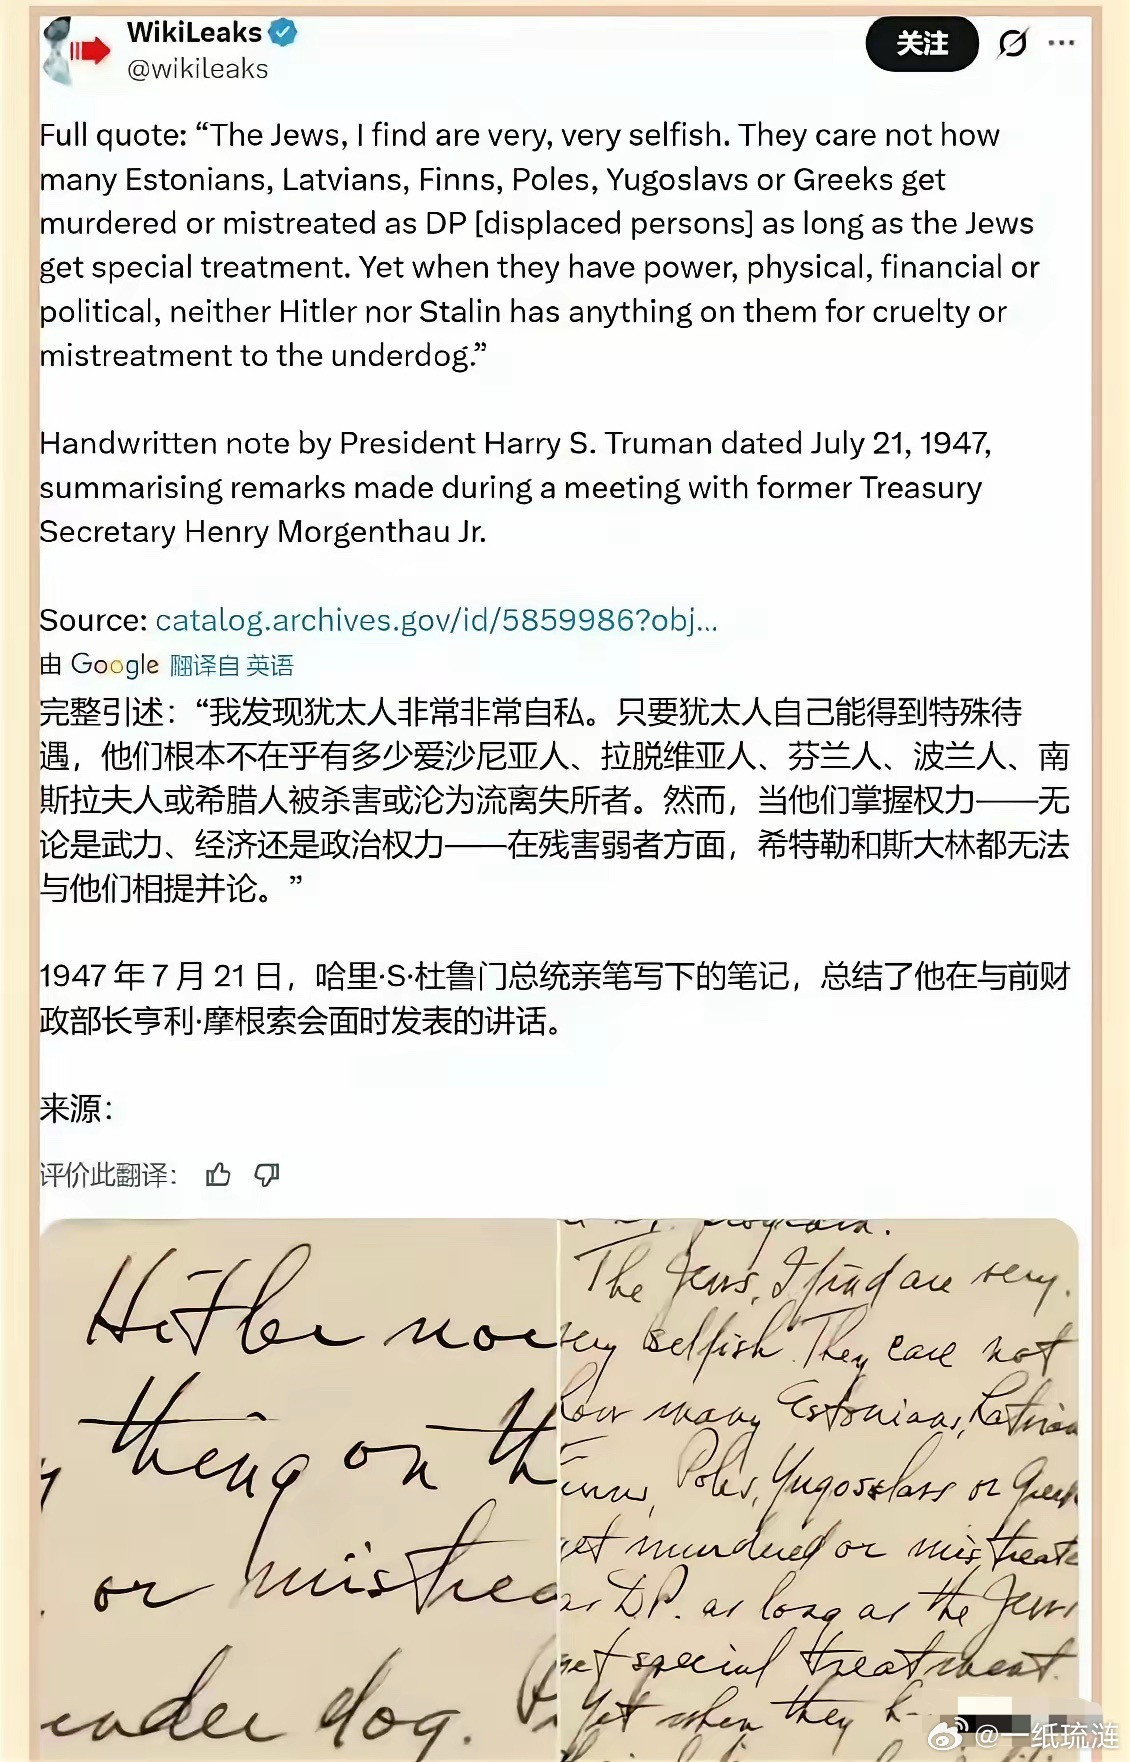 WikiLeaks
@wikileaks
关注
Full quote: “The Jews, I find are very, very selfish. They care not how
many Estonians, Latvians, Finns, Poles, Yugoslavs or Greeks get
murdered or mistreated as DP [displaced persons] as long as the Jews
get special treatment. Yet when they have power, physical, financial or
political, neither Hitler nor Stalin has anything on them for cruelty or
mistreatment to the underdog.”
Handwritten note by President Harry S. Truman dated July 21, 1947,
summarising remarks made during a meeting with former Treasury
Secretary Henry Morgenthau Jr.
Source: catalog.archives.gov/id/5859986?obj...
由 Google 翻译自 英语
完整引述：“我发现犹太人非常非常自私。只要犹太人自己能得到特殊待
遇，他们根本不在乎有多少爱沙尼亚人、拉脱维亚人、芬兰人、波兰人、南
斯拉夫人或希腊人被杀害或沦为流离失所者。然而，当他们掌握权力——无
论是武力、经济还是政治权力——在残害弱者方面，希特勒和斯大林都无法
与他们相提并论。”
1947 年 7 月 21 日，哈里·S·杜鲁门总统亲笔写下的笔记，总结了他在与前财
政部长亨利·摩根索会面时发表的讲话。
来源：
评价此翻译：
Hitler nor
thing on th
or mistrea
under dog.
program.
The Jews, I find are very,
very selfish. They care not
how many Estonians, Latvian
Finns, Poles, Yugoslavs or Greek
get murdered or mistreate
as D.P. as long as the Jews
get special treatment.
Yet when they h
@一纸琉涟